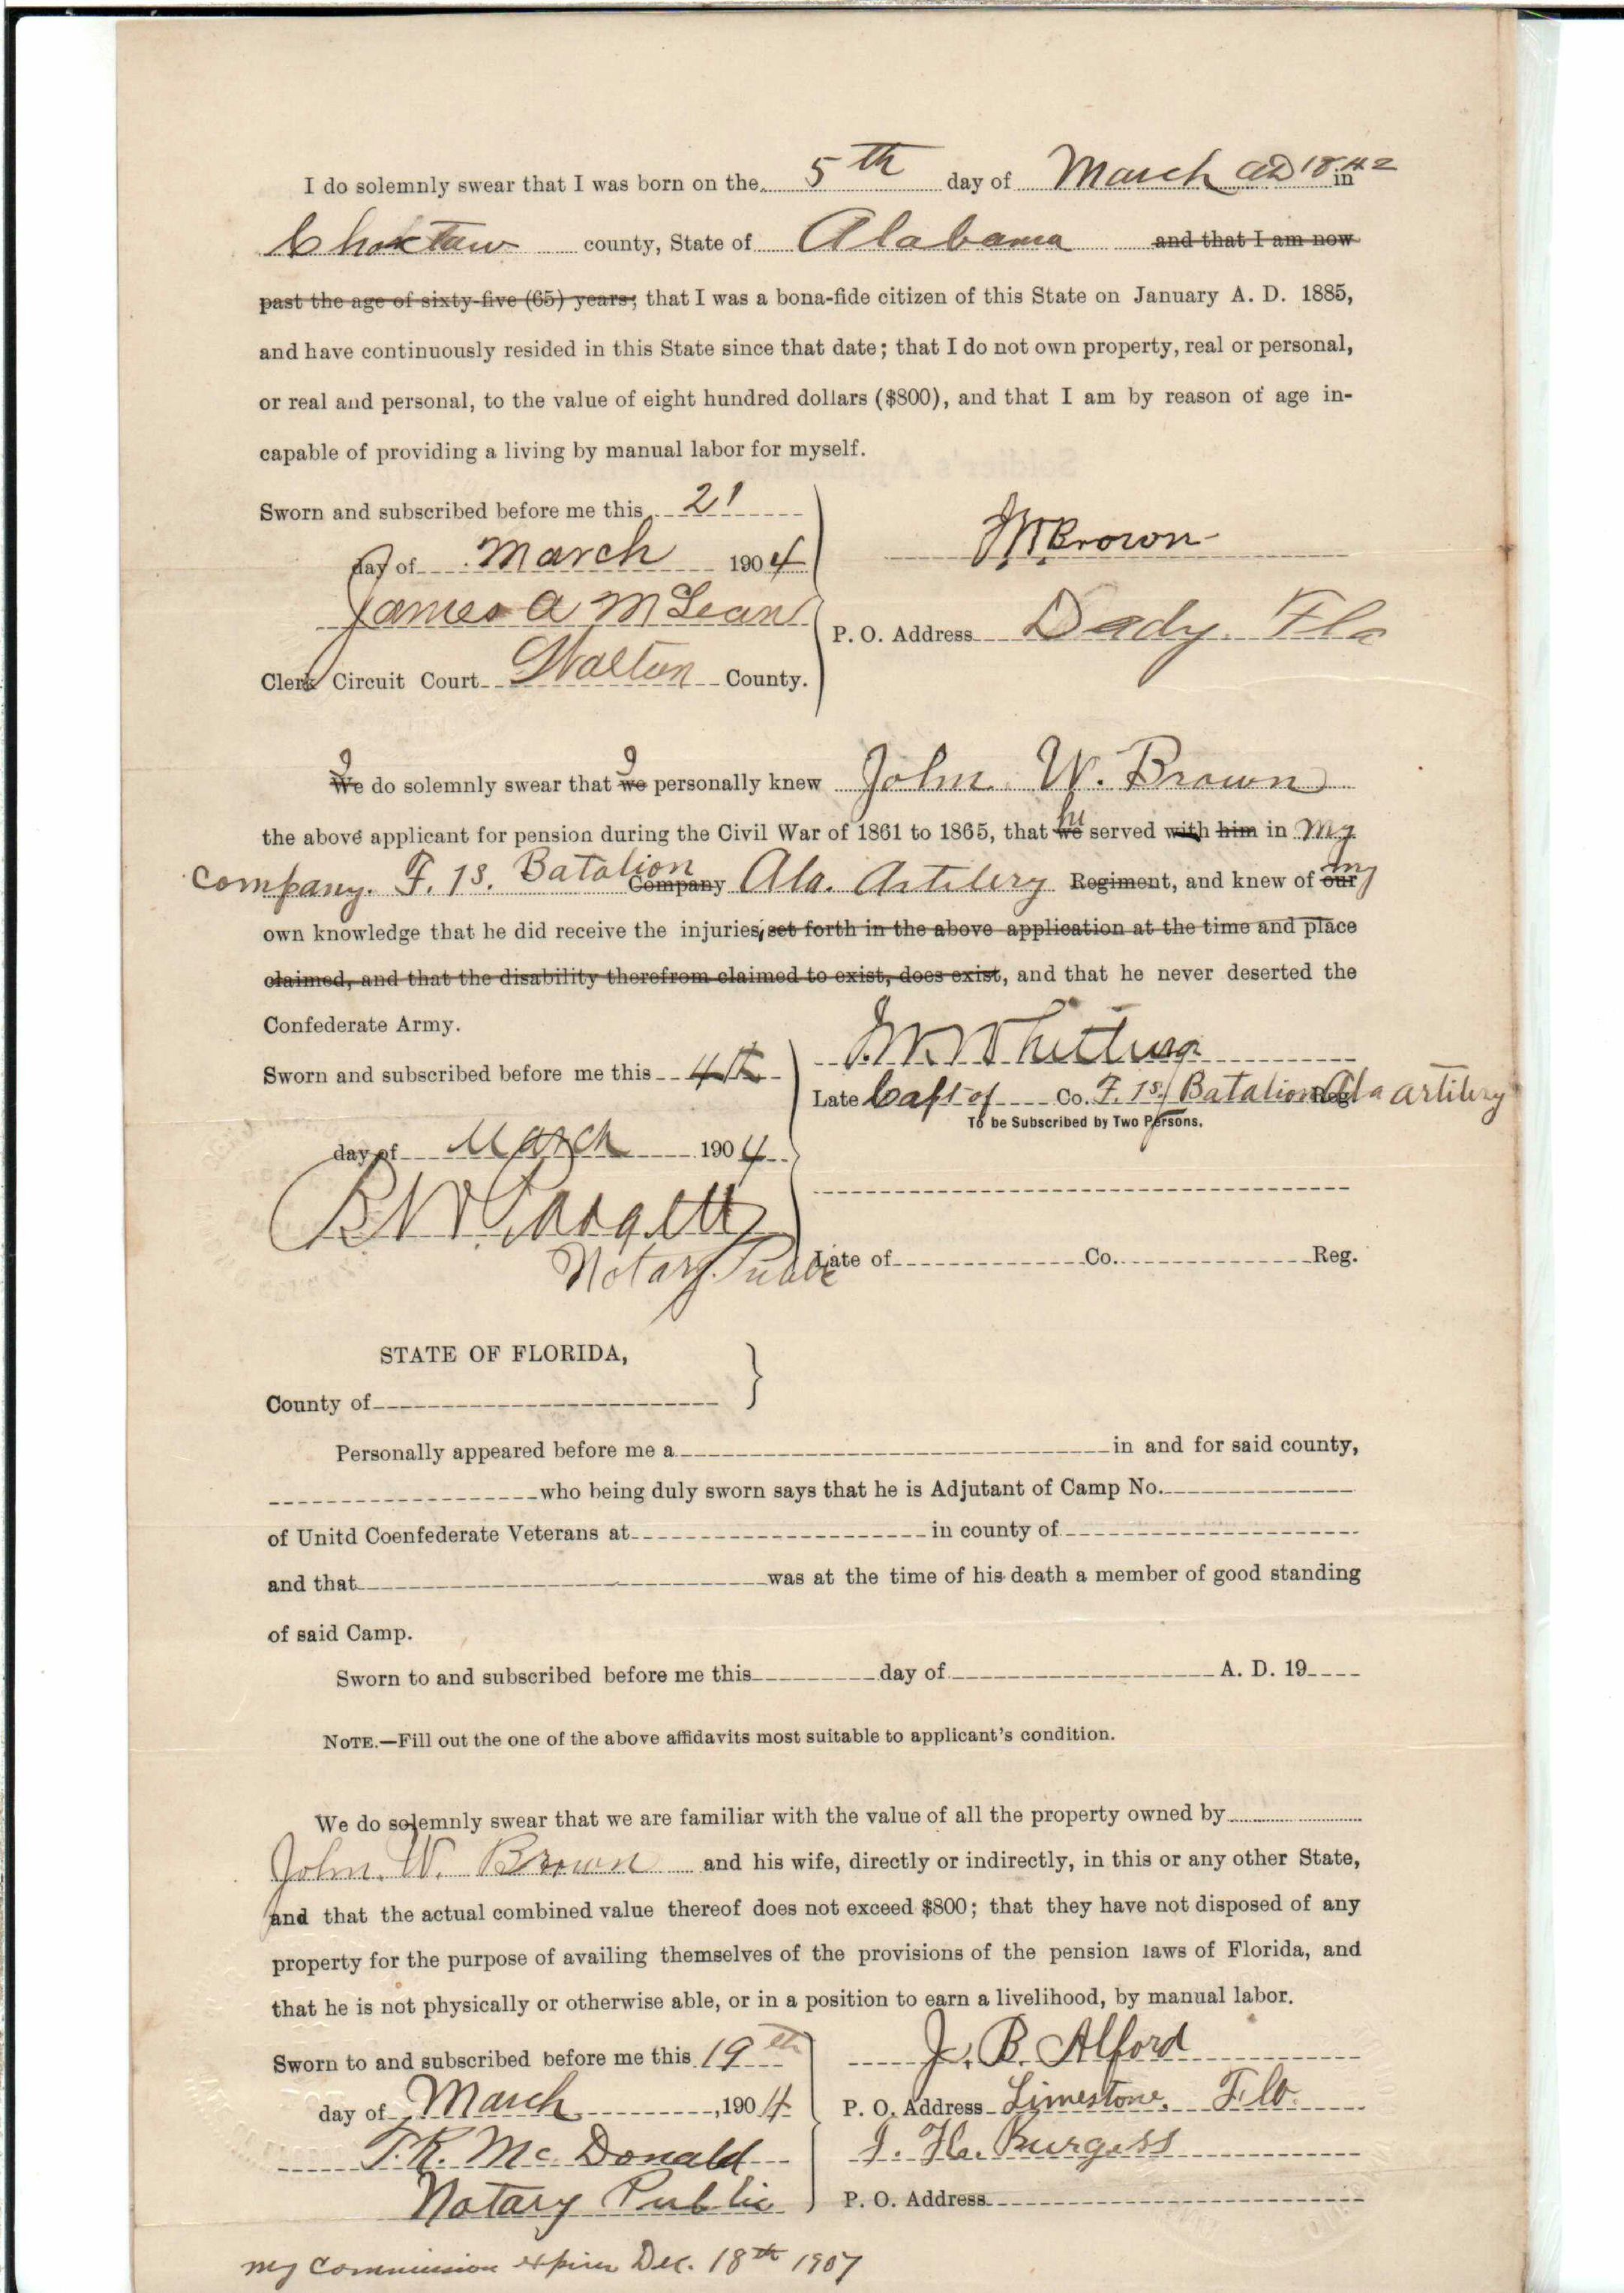 I do solemnly swear that I was born on the 5th day of March AD 1842 in
Choktaw county, State of Alabama and that I am now
past the age of sixty-five (65) years; that I was a bona-fide citizen of this State on January A. D. 1885,
and have continuously resided in this State since that date; that I do not own property, real or personal,
or real and personal, to the value of eight hundred dollars ($800), and that I am by reason of age in-
capable of providing a living by manual labor for myself.
Sworn and subscribed before me this 21
day of March 1904
James A McLean
Clerk Circuit Court Walton County.
JWBrown
P. O. Address Dady. Fla
I I
We do solemnly swear that we personally knew John W. Brown
the above applicant for pension during the Civil War of 1861 to 1865, that we he served with him in my
company. F. 1s. Batalion Company Ala. Artilery Regiment, and knew of our my
own knowledge that he did receive the injuries, set forth in the above application at the time and place
claimed, and that the disability therefrom claimed to exist, does exist, and that he never deserted the
Confederate Army.
Sworn and subscribed before me this 4th
day of March 1904
Notary Public
Late Capt of Co. F. 1st Batalion Reg. Ala artilery
To be Subscribed by Two Persons.
Late of Co. Reg.
STATE OF FLORIDA,
County of
Personally appeared before me a in and for said county,
who being duly sworn says that he is Adjutant of Camp No.
of Unitd Coenfederate Veterans at in county of
and that was at the time of his death a member of good standing
of said Camp.
Sworn to and subscribed before me this day of A. D. 19
NOTE.—Fill out the one of the above affidavits most suitable to applicant's condition.
We do solemnly swear that we are familiar with the value of all the property owned by
John. W. Brown and his wife, directly or indirectly, in this or any other State,
and that the actual combined value thereof does not exceed $800; that they have not disposed of any
property for the purpose of availing themselves of the provisions of the pension laws of Florida, and
that he is not physically or otherwise able, or in a position to earn a livelihood, by manual labor.
Sworn to and subscribed before me this 19th
day of March, 1904
T. R. McDonald
Notary Public
J. B. Alford
P. O. Address Limestone, Fla.
J. H. Burgess
P. O. Address
my Commission expires Dec. 18th 1907